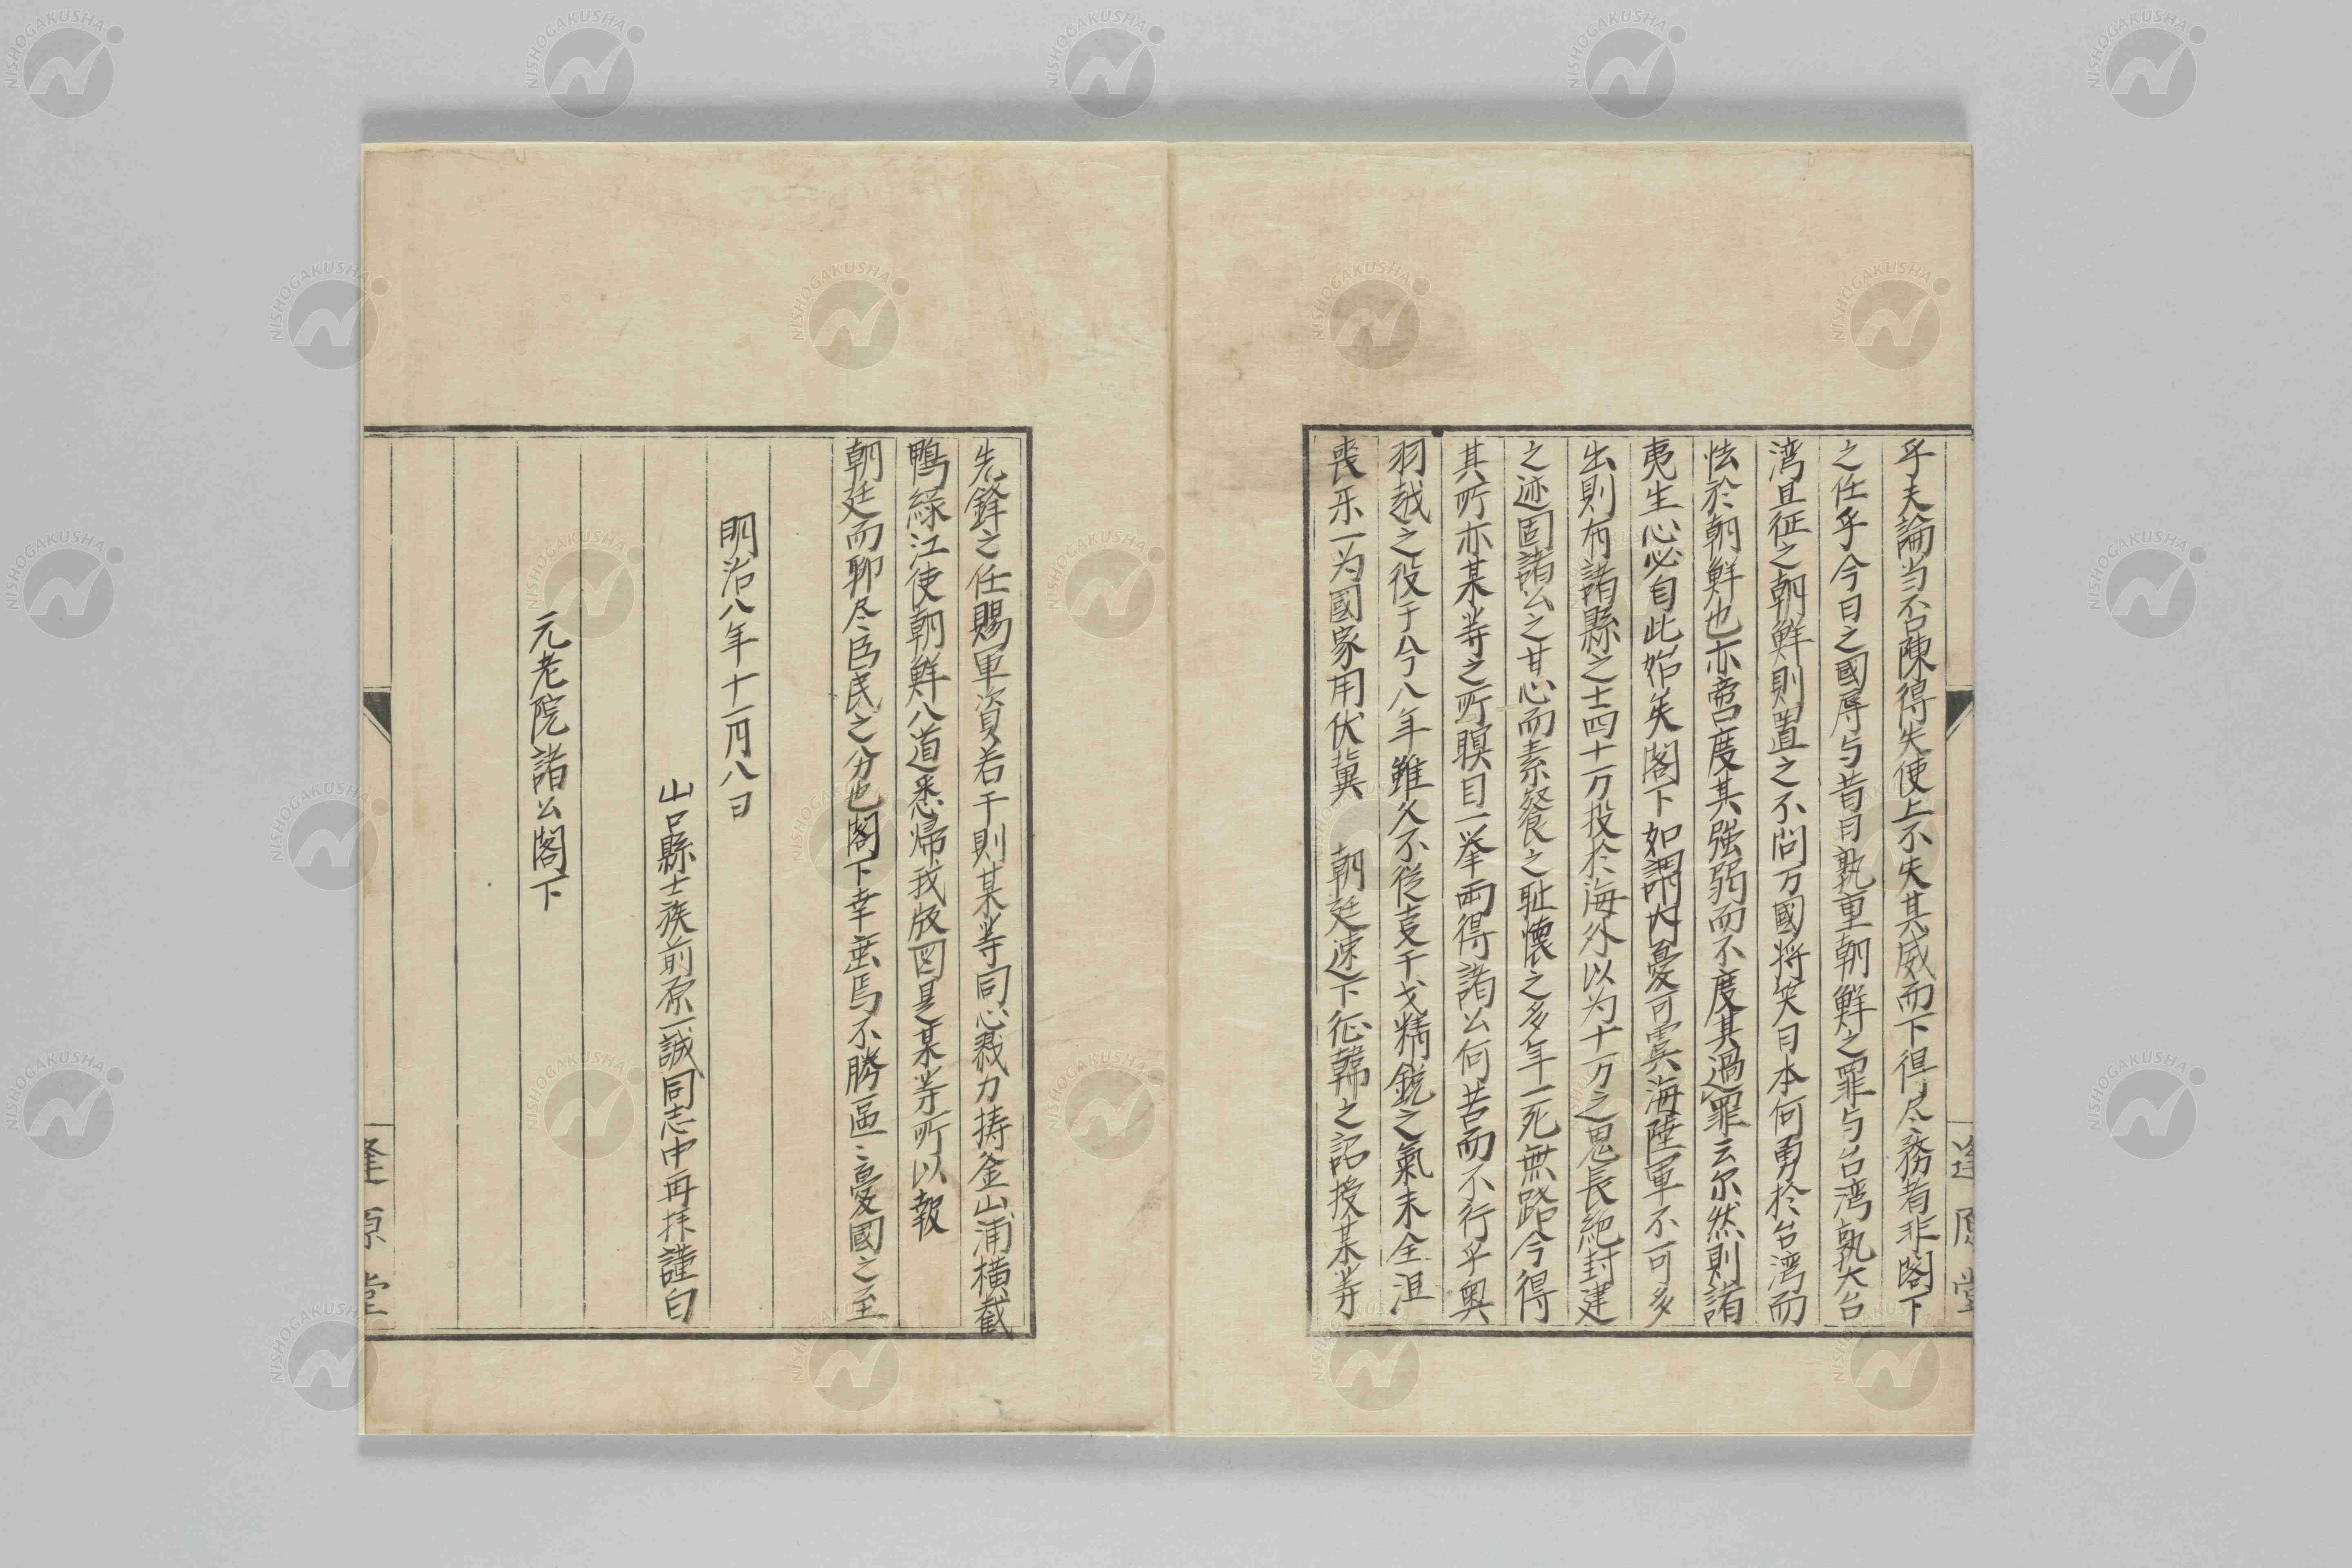 乎夫論当否陳得失使上不失其威而下得尽務者非閣下
之任乎今日之國辱与昔日孰重朝鮮之罪与台湾孰大台
湾且征之朝鮮則置之不問万國将笑曰本何勇於台湾而
怯於朝鮮也亦啻度其強弱而不度其過罪云尔然則諸
夷生心必自此始矣閣下如謂内憂可虞海陸軍不可多
出則布諸縣之士四十万投於海外以为十万之鬼長絶封建
之迹固諸公之甘心而素餐之耻懐之多年一死無路今得
其所亦某等之所瞑目一挙両得諸公何苦而不行乎奥
羽越之役于今八年雖久不従支干戈精鋭之氣未全沮
喪乐一为國家用伏冀 朝廷速下征韓之詔授某等
先鋒之任賜軍資若干則某等同心戮力擣釜山浦横截
鴨緑江使朝鮮八道悉帰我版図是某等所以報
朝廷而聊尽臣民之分也閣下幸垂焉不勝區〻憂國之至
明治八年十一月八日
山口縣士族前原一誠同志中再拝謹白
元老院諸公閣下
逢原堂
逢原堂
NISHOGAKUSHA